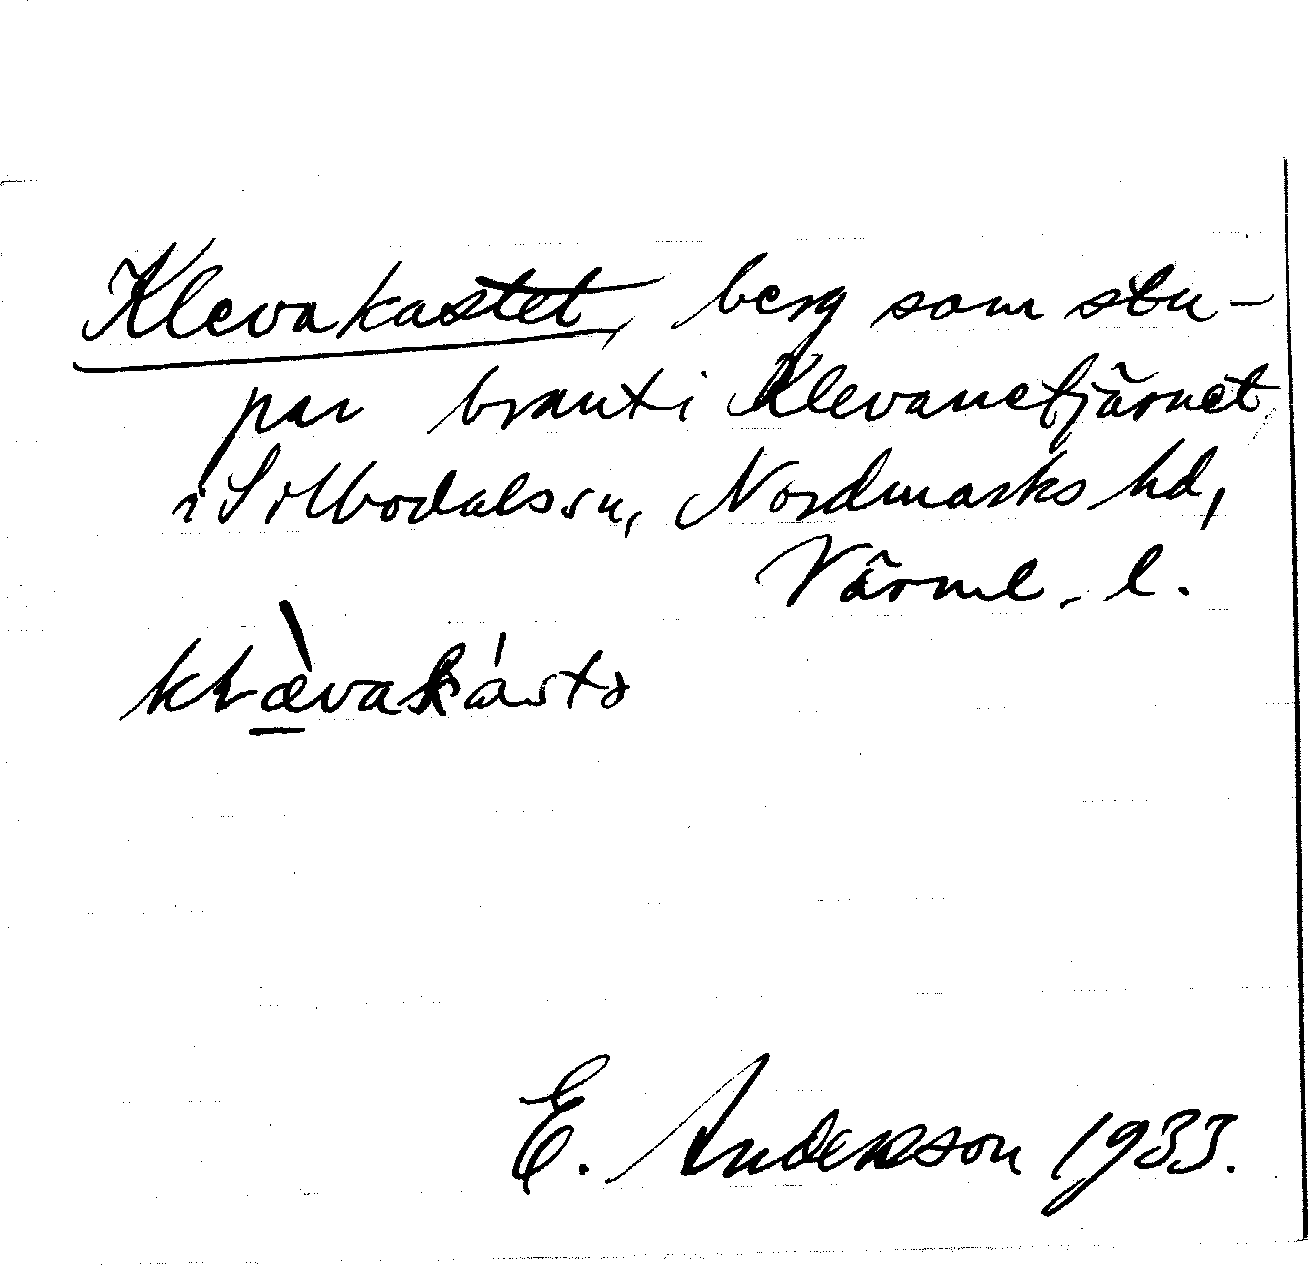 Klevakastet, berg som stu-
par brant i Klevanetjärnet
i Silbodals sn, Nordmarks hd,
Värml. l.
E. Anderson 1933.